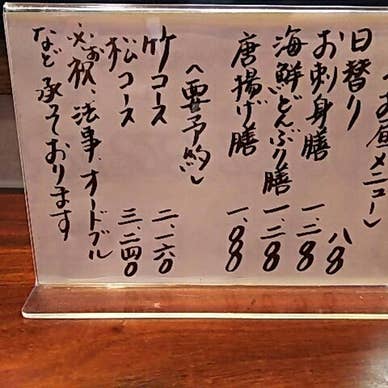 お昼メニュー）
日替り 八〇〇
お刺身膳 一、二〇〇
海鮮どんぶり膳 一、二〇〇
唐揚げ膳 一、〇〇〇
〈要予約〉
竹コース 二、一六〇
松コース 三、二四〇
※お祝、法事、オードブル
など承ております